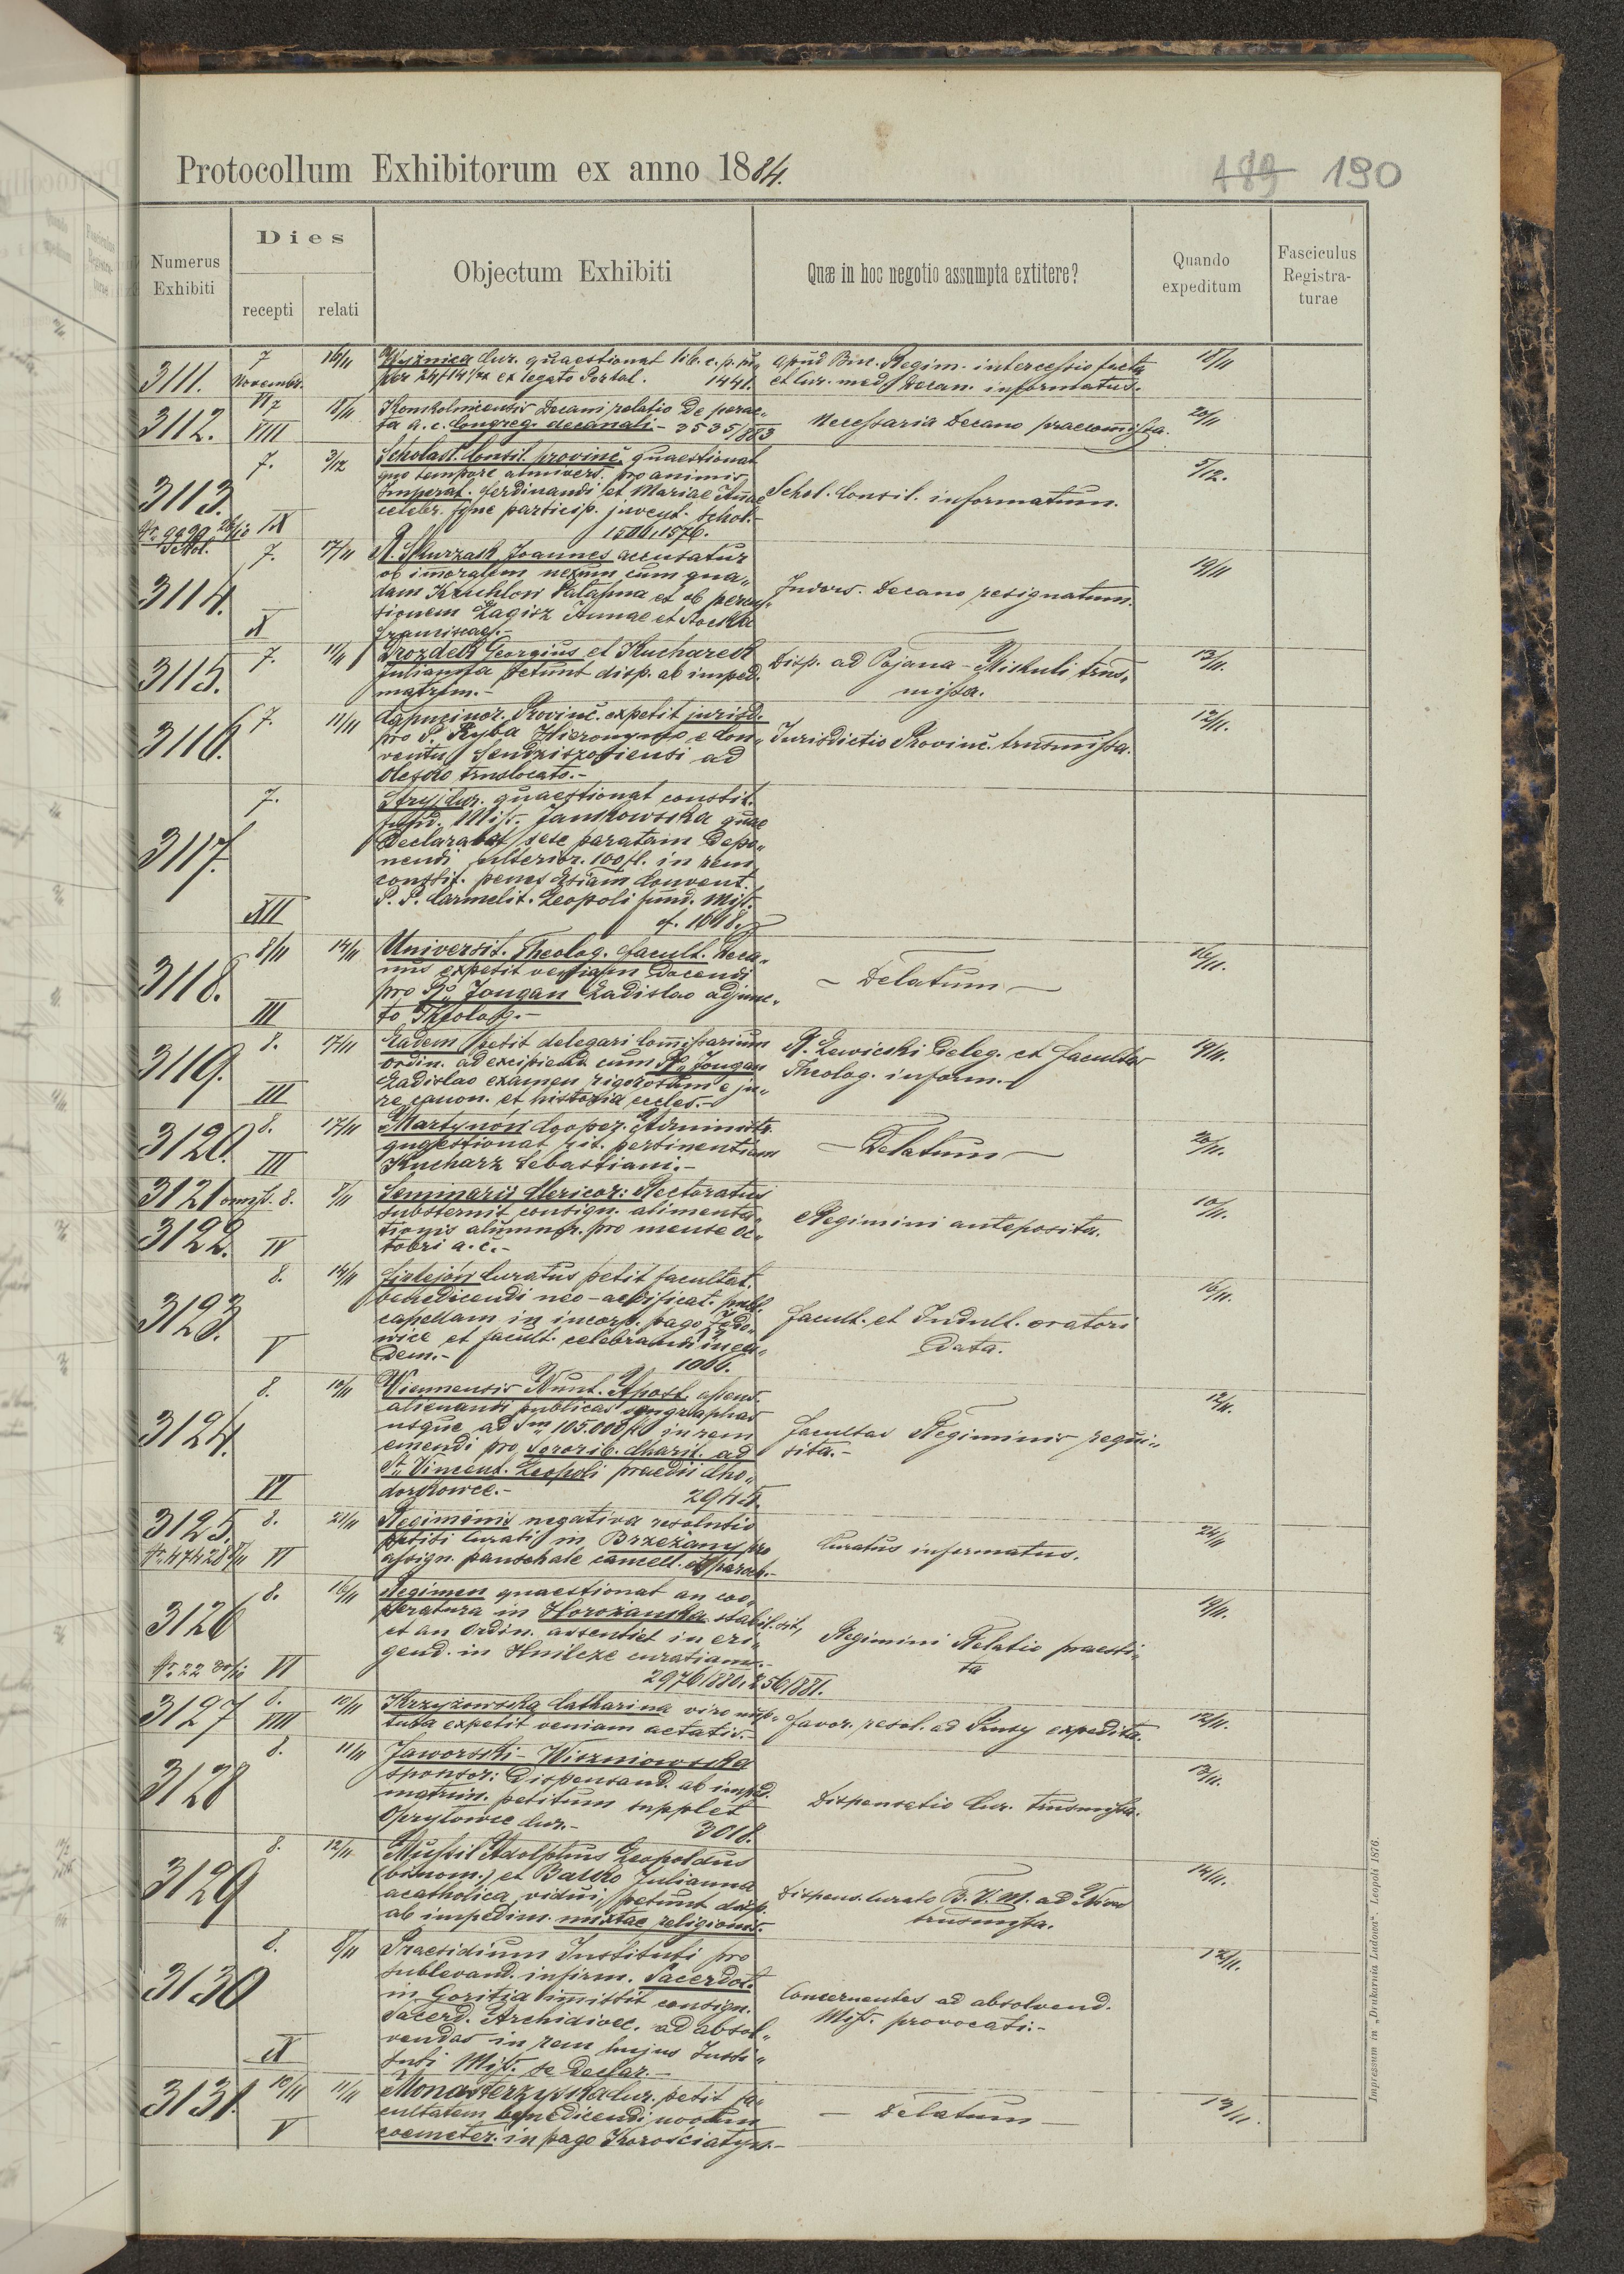 Protocollum Exhibitorum ex anno 1884.
189 190
Numerus Exhibiti
Dies
recepti relati
Objectum Exhibiti
Quæ in hoc negotio assumpta extitere?
Quando expeditum
Fasciculus Registra-turae
3111. 7 Novembr. 16/11
Wyżnica Cur. quaestionat lib. c. p. su„
per 24 f 14 1/2 x ex legato Portal. 1441.
apud Buc. Regim. intercessio facta
et Cur. med. Decan. informatus.
18/11
3112. 7 VIII 18/11
Decani relatio de perac„
ta a. c. Congreg. decanali - 3535/883
Necessaria Decano praecomissa.
20/11
3113. 7. 3/12
Nr. 9899 26/10 Schol. IX
Scholast. Consil. provinc. quaestionat
quo tempore annivers. pro animis
Imperat. Ferdinandi et Mariae Annae
celebr. sque particip. juvent. schol.-
1506, 1576.
Schol. Consil. informatum.
5/12.
3114. 7. X 17/11
R. Skurzak Joannes accusatur
ob im̄oralem nexum cum qua„
dam Kruchlon Parasna et ob percus„
sionem Lagisz Annae et
Franciscae.-
Indors. Decano resignatum.
19/11
3115. 7. 11/11
Drozdek Georgius et Kucharek
Julianna petunt disp. ab imped.
matrim.-
Disp. ad Pojana-Mikuli trns„
missa.
13/11.
3116. 7. 11/11
Capucinor. Provinc. expetit jurisd.
pro P. Ryba Hieronymo e Con„
ventu Sendziszoviensi ad
Olesko trnslocato.-
Jurisdictio Provinc. trnsmissa.
12/11.
3117. 7. XII
Stryj Cur. quaestionat constit.
fund. Miss. Jankowska quae
declarabat sese paratam depo„
nendi ulterior. 100 fl. in rem
constit. penes Convent.
P. P. Carmelit. Leopoli fund. Miss.
cf. 1698.
3118. 8/11 III 14/11
Universit. Theolog. Facult. Deca„
nus expetit veniam docendi
pro Jougan Ladislao adjunc„
to Theolog.-
- Delatum -
16/11.
3119. 8. III 17/11
Eadem petit delegari Com̄issarium
ordin. ad excipiend. cum Jougan
Ladislao examen rigorosum e ju„
re canon. et historia eccles.-
R. Zewicki deleg. et Facultas
Theolog. inform.
19/11.
3120. 8. III 17/11
Martynów Cooper. Administr.
quaestionat rit. pertinentiam
Kucharz Sebastiani.-
- Delatum -
20/11.
3121 omiss. 8. 8/11
3122. IV
Seminarij Clericor: Rectoratus
substernit consign. alimenta„
tionis alumnor. pro mense Oc„
tobri a. c.-
Regimini anteposita.
10/11.
3123. 8. V 14/11
Firlejów Curatus petit facultat.
benedicendi neo-aedificat. publ.
capellam in incorp. pago
wice et facult. celebrandi in ea„
dem.- 1066.
Facult. et Indult. oratori
data.
16/11.
3124. 8. VI 10/11
Viennensis Nunt. Apost. assens.
alienandi publicas syngraphas
usque ad Sm 105.000 fl in rem
emendi pro Sororib. Charit. ad
St. Vincent. Leopoli praedii Cho„
dorkowce.- 2945.
Facultas Regiminis requi„
sita.-
12/11.
3125. 8. 21/11
Nr. 47428 VI
Regiminis negativa resolutio
petiti Curati in Brzeżany pro
assign. pauschale cancell. et paroch.-
Curatus informatus.
24/11
3126 8. 16/11
Nr. 22 VI
Regimen quaestionat an coo„
peratura in Horożanka stabil. sit,
et an Ordin. assentiet in eri„
gend. in Hnilcze curatiam.-
2976/880, 256/881.
Regimini Relatio praesti„
ta
19/11.
3127 8. VIII 10/11
Krzyżowska Catharina viro nup„
tura expetit veniam aetatis.-
Favor. resol. ad Prusy expedita.
12/11.
3128 8. 11/11
Jaworski - Wiszniowska
sponsor: dispensand. ab imped.
matrim. petitum supplet
Opryłowce Cur.- 3018.
Dispensatio Cur. trnsmissa.
13/11.
3129 8. 12/11
Mussil Adolphus Leopoldus
(binom.) et Julianna
acatholica, vidui, petunt disp.
ab impedim. mixtae religionis.
Dispens. Curato B. V. M. ad Nives
trnsmissa.
14/11.
3130 8. X 8/11
Praesidium Instituti pro
sublevand. infirm. Sacerdot.
in Goritia im̄ittit consign.
Sacerd. Archidioec. ad absol„
vendas in rem hujus Insti„
tuti Miss. se declar.-
Concernentes ad absolvend.
Miss. provocati.-
12/11.
3131. 10/11 V 11/11
Monasterzyska Cur. petit fa„
cultatem benedicendi novum
coemeter. in pago Korościatyn.-
- Delatum -
13/11.
Impressum in „Drukarnia Ludowa“. Leopoli 1876.